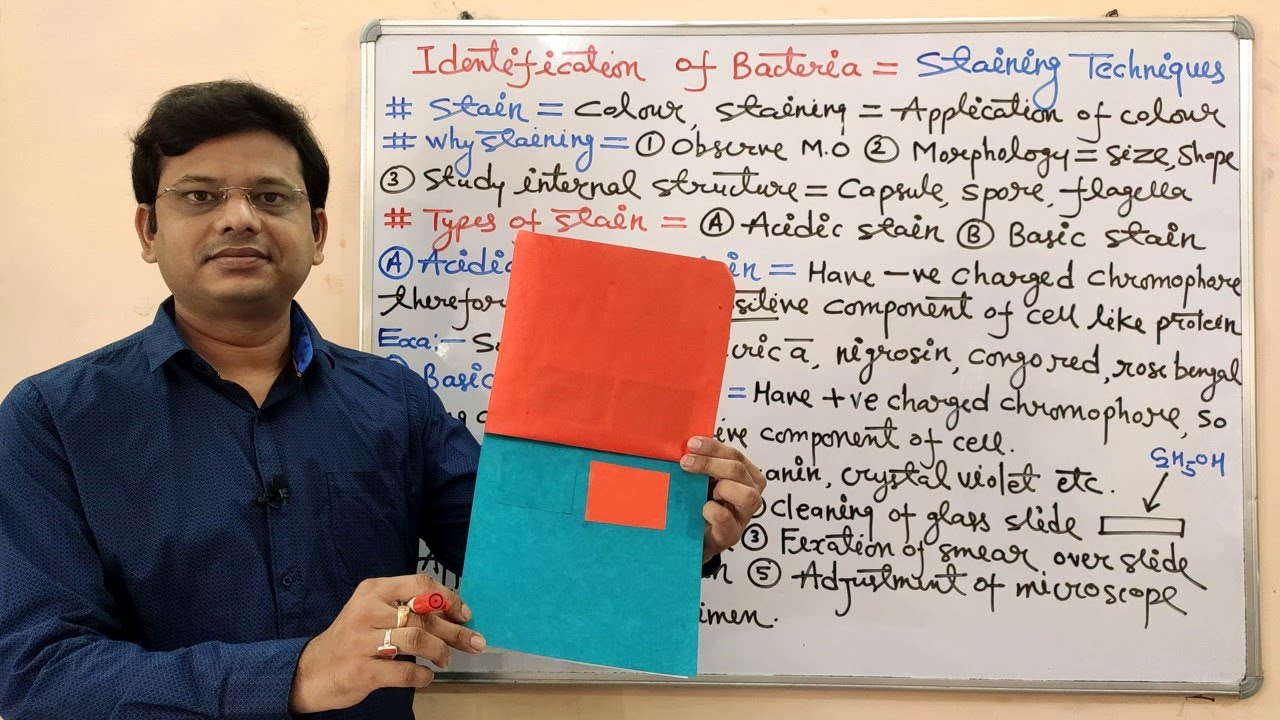 Identification of Bacteria = Staining Techniques
# Stain = Colour, staining = Application of colour
# Why staining = ① Observe M.O ② Morphology = size, shape
③ Study internal structure = Capsule, spore, flagella
# Types of stain = Ⓐ Acidic stain Ⓑ Basic stain
Ⓐ Acidic = Have -ve charged chromophore
component of cell like protein
Exa:- nigrosin, congo red, rose bengal
Basic = Have +ve charged chromophore, so
component of cell.
crystal violet etc.
C2H5OH
Cleaning of glass slide
③ Fixation of smear over slide
⑤ Adjustment of microscope